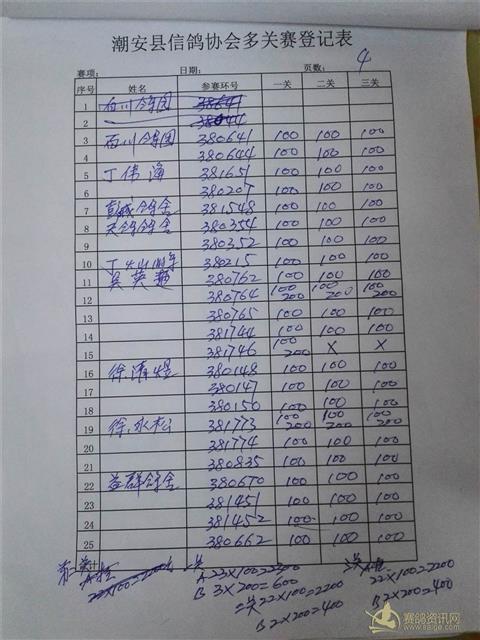 潮安县信鸽协会多关赛登记表
赛项： 日期： 页数： 4
序号 姓名 参赛环号 一关 二关 三关
1 石川鸽园 38641
2 38044
3 石川鸽园 380641 100 100 100
4 380644 100 100 100
5 丁伟海 381651 100 100 100
6 380207 100 100 100
7 彭城鸽舍 381548 100 100 100
8 天鸽鸽舍 380354 100 100 100
9 380352 100 100 100
10 丁 380215 100 100 100
11 吴英越 380762 100 100 100
12 380764 100 200 100 200 100 200
13 380765 100 100 100
14 381744 100 100 100
15 381746 100 200 X X
16 徐清煜 380148 100 100 100
17 380147 100 100 100
18 380150 100 100 100
19 徐永松 381773 100 200 100 200 100 200
20 381774 100 100 100
21 380835 100 100 100
22 益群鸽舍 380670 100 100 100
23 381451 100 100 100
24 381452 100 100 100
25 380662 100 100 100
计
A 23×100=2300
B 3×200=600
二关 22×100=2200
B 2×200=400
三关
22×100=2200
B 2×200=400
赛鸽资讯网
www.saige.com